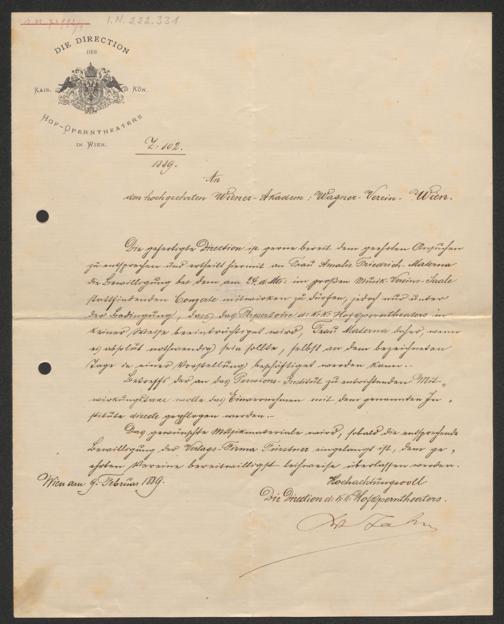 I.N. 222.331
DIE DIRECTION
DES
KAIS. KÖN.
HOF-OPERNTHEATERS
IN WIEN.
Z: 102.
1889.
An
den hochgeehrten Wiener-Akadem: Wagner-Verein. Wien.
Die gefertigte Direction ist gerne bereit dem geehrten Ansuchen
zu entsprechen und ertheilt hiermit an Frau Amalie Friedrich-Materna
die Bewilligung bei dem, am 24. d. Mts. im großen Musik-Vereins-Saale
stattfindenden Concerte mitwirken zu dürfen, jedoch nur unter
der Bedingung, dass das Repertoire d: k. k. Hofoperntheaters in
keiner Weise beeinträchtigt wird, Frau Materna daher, wenn
es absolut nothwendig sein sollte, selbst an dem bezeichneten
Tage in einer Vorstellung beschäftigt werden kann.
Betreffs der an das Pensions-Institut zu entrichtenden Mit-
wirkungstaxe wolle das Einvernehmen mit dem genannten In-
stitute directe gepflogen werden.
Das gewünschte Musikmateriale wird, sobald die entsprechende
Bewilligung der Verlags-Firma Fürstner eingelangt ist, dem ge-
ehrten Vereine bereitwilligst leihweise überlassen werden.
Wien am 9. Februar 1889.
Hochachtungsvoll
Die Direction d: k. k. Hofoperntheaters.
Jahn